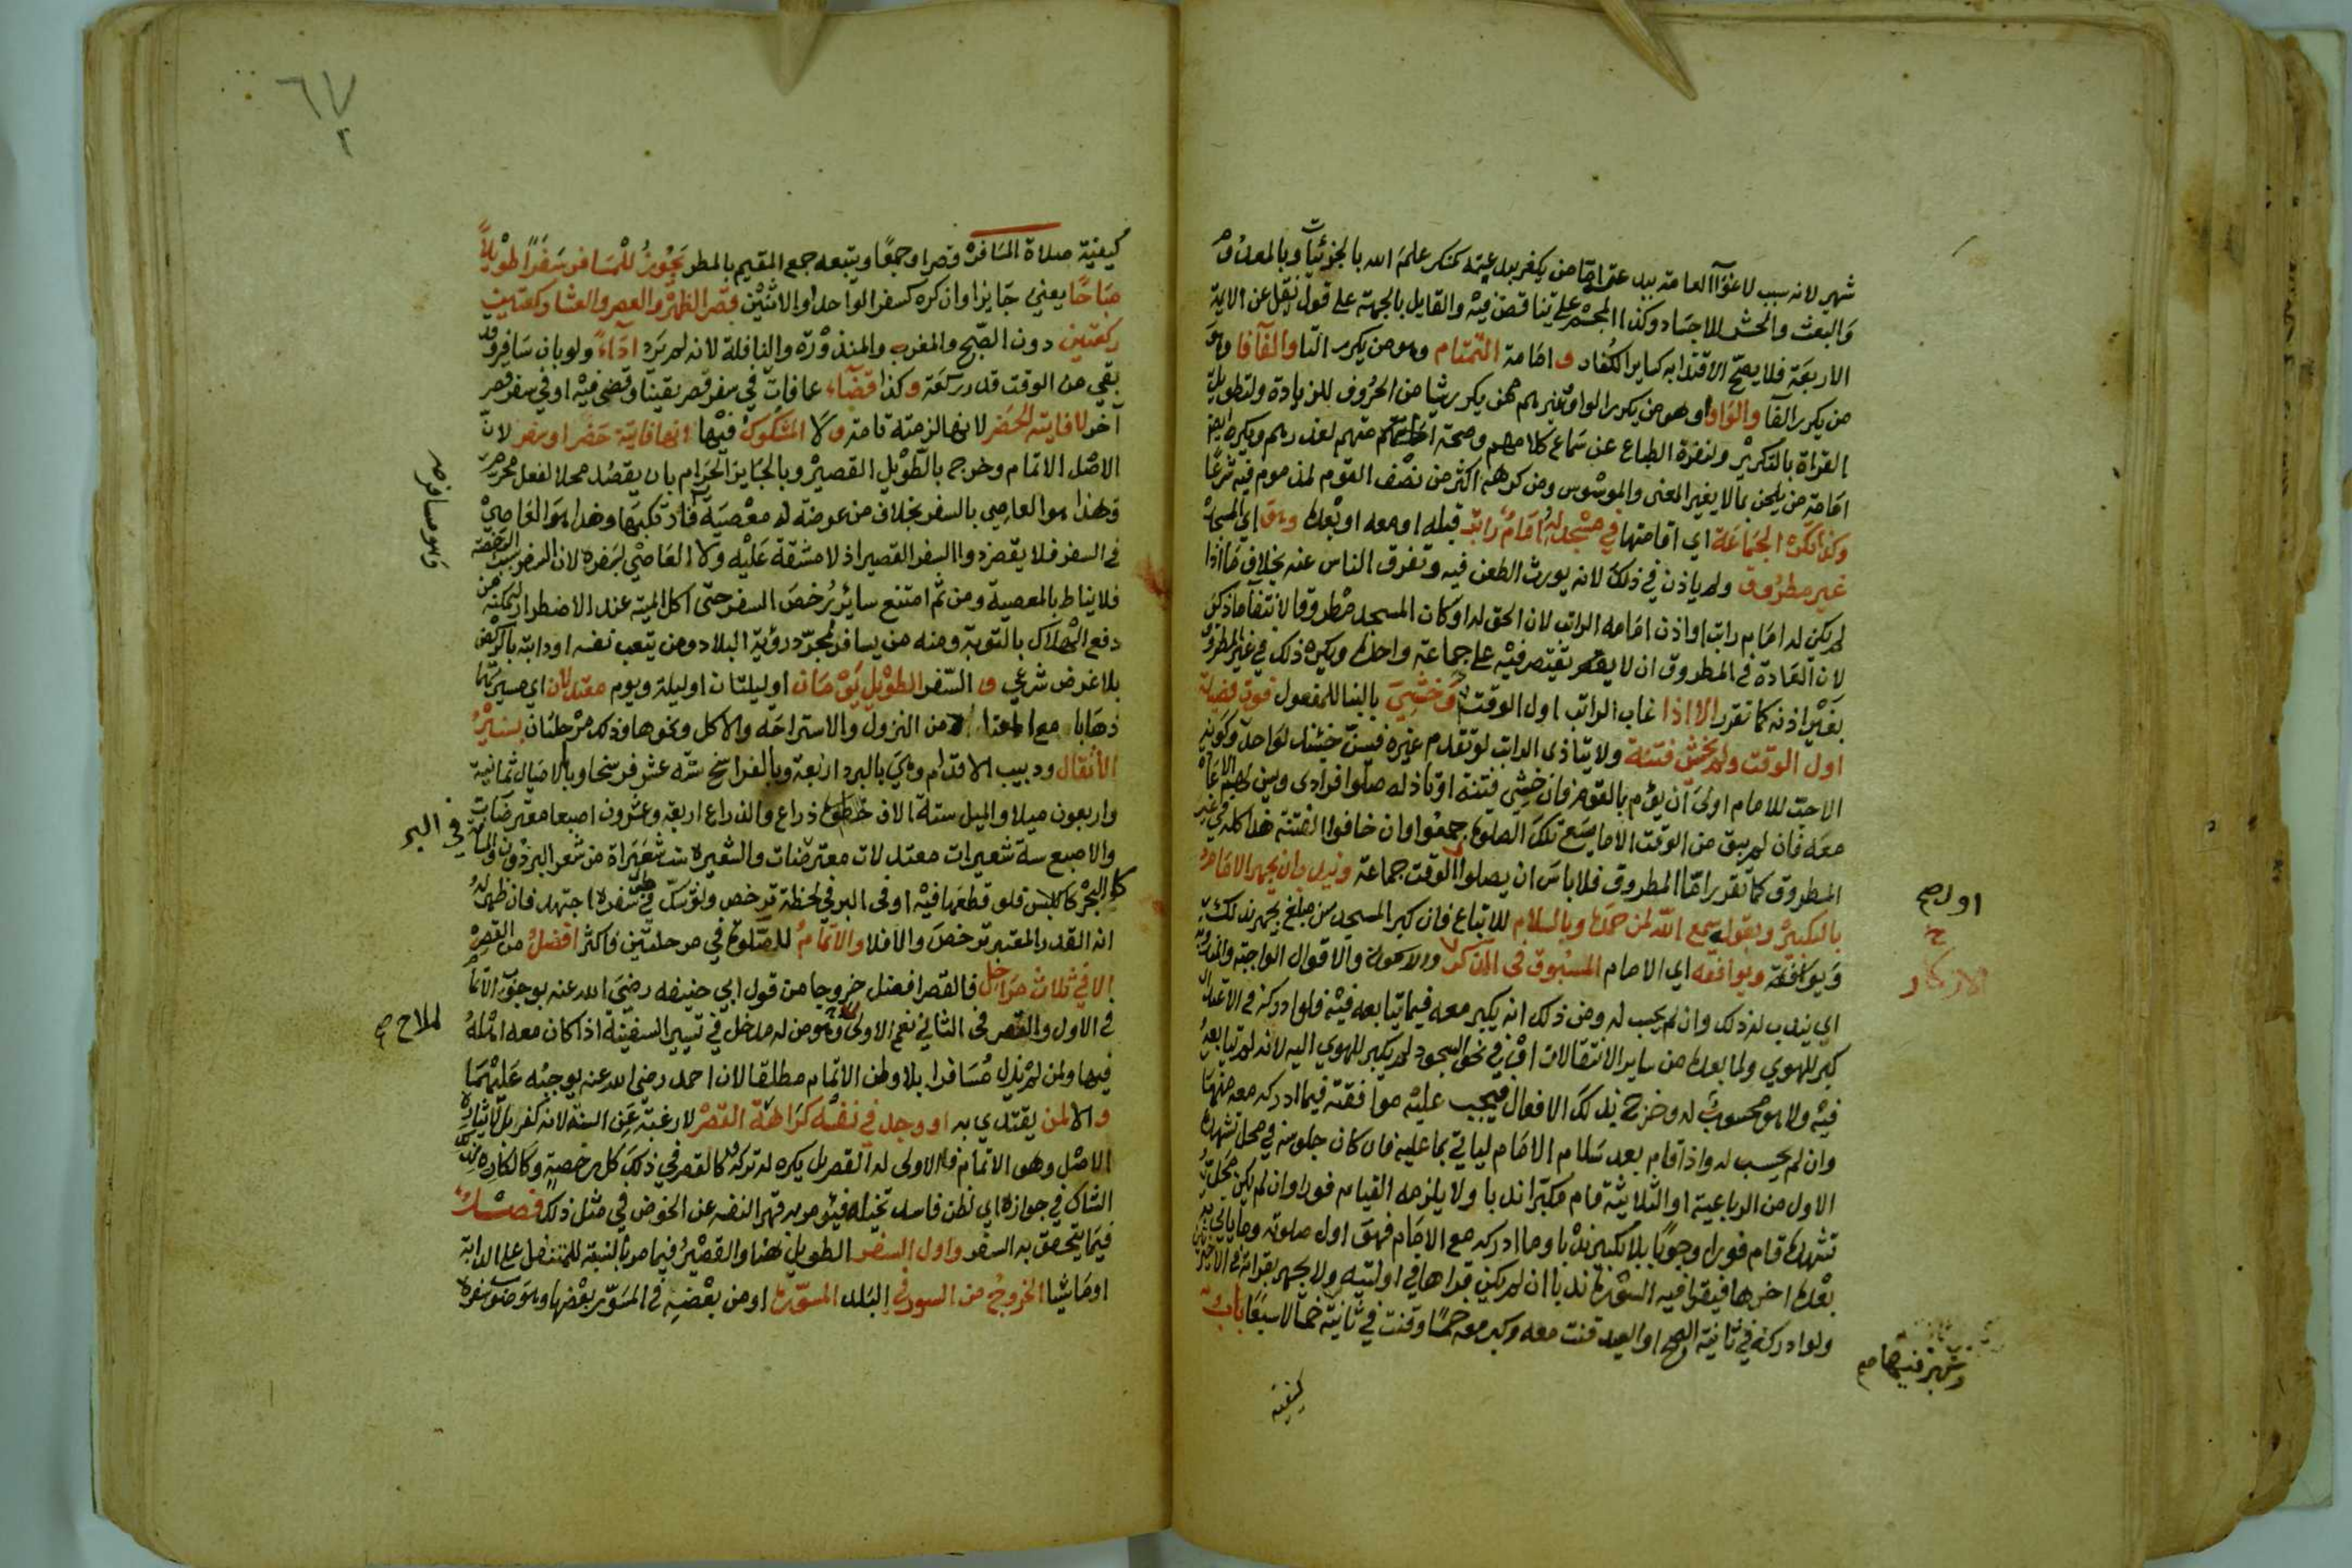 شهير لانه سبب لاغوآ العامة ببدعته اما من يكفر ببدعته كمنكر علم الله بالجزئيات وبالمعدوم
والبعث والحشر للاجساد وكذا المجسم على تناقض فيه والقايل بالجهة على قول نقل عن الايمة
الاربعة فلا يصح الاقتدا به كساير الكفار و امامة التمتام وهو من يكرر التا والفأفا وهو
من يكرر الفا والواوا وهو من يكرر الواو وغيرهم ممن يكرر شيا من الحروف للزيادة ولتطويل
القراة بالتكرير ولنفرة الطباع عن سماع كلامهم وصحت امامتهم لعذرهم ويكره ايضا
امامة من يلحن بما لا يغير المعنى والموسوس ومن كرهه اكثر من نصف القوم لمذموم فيه شرعا
وكذا تكره الجماعة اي اقامتها في مسجد له امام راتب قبله او معه او بعده وهو اي المسجد
غير مطروق ولم ياذن في ذلك لانه يورث الطعن فيه وتفرق الناس عنه بخلاف ما اذا
لم يكن له امام راتب او اذن امامه الراتب لان الحق له او كان المسجد مطروقا لانتفا ما ذكر
لان العادة في المطروق ان لا يقتصر فيه على جماعة واحدة ويكره ذلك في غير المطروق
بغير اذنه كما تقرر الا اذا غاب الراتب اول الوقت وخشي بالبنا للمفعول فوت فضيلة
اول الوقت ولم يخش فتنة ولا يتاذى الراتب لو تقدم غيره فيسن حينئذ لواحد وكونه
الاحب للامام اولى ان يؤم بالقوم فان خشي فتنة او تاذيه صلوا فرادى وسن لهم الاعادة
معه فان لم يبق من الوقت الا ما يسع تلك الصلوة جمعوا وان خافوا الفتنة هذا كله في غير
المطروق كما تقرر اما المطروق فلا باس ان يصلوا الوقت جماعة ويندب ان يجهر الامام
بالتكبير وبقول سمع الله لمن حمده وبالسلام للاتباع فان كبر المسجد سن مبلغ يجهر بذلك
ويوافقه اي الامام المسبوق في الاذكار والاقوال الواجبة والمندوبة
اي يندب له ذلك وان لم يحسب له ومن ذلك انه يكبر معه فيما يتابعه فيه فلو ادركه في الاعتدال
كبر للهوي ولما بعده من ساير الانتقالات او في نحو السجود لم يكبر للهوي اليه لانه لم يتابعه
فيه ولا هو محسوب له وخرج بذلك الافعال فيجب عليه موافقته فيما ادركه معه منها
وان لم يحسب له واذا قام بعد سلام الامام لياتي بما عليه فان كان جلوسه في محل تشهده
الاول من الرباعية او الثلاثية قام مكبرا ندبا ولا يلزمه القيام فورا وان لم يكن محل
تشهده قام فورا وجوبا بلا تكبير ندبا وما ادركه مع الامام فهو اول صلوته وما ياتي به
بعده اخرها فيقرا فيه السورة ندبا ان لم يكن قراها في اولتيه ولا يجهر بقراته في الاخيرتين
ولو ادركه في ثانية الصبح او العيد قنت معه وكبر معه خمسا وقنت في ثانيته خمسا لا سبعا باب
اولهم
الاذكار
كيفية
كيفية صلاة المسافر قصرا وجمعا ويتبعه جمع المقيم بالمطر يجوز للمسافر سفرا طويلا
مباحا يعني جايزا وان كره كسفر الواحد او الاثنين قصر الظهر والعصر والعشا ركعتين
ركعتين دون الصبح والمغرب والمنذورة والنافلة لانه لم يرد اداء ولو بان سافر وقد
بقي من الوقت قدر ركعة وكذا قضاء عما فات في سفر قصر يقينا وقضي فيه او في سفر قصر
آخر لا فايتة الحضر لانها لزمته تامة ولا المشكوك فيها انها فايتة حضر او سفر لان
الاصل الاتمام وخرج بالطويل القصير وبالجايز الحرام بان يقصد محلا لفعل محرم
وهذا هو العاصي بالسفر بخلاف من عرضت له معصية فارتكبها وهذا هو العاصي
في السفر فلا يقصر ذو السفر القصير اذ لا مشقة عليه ولا العاصي بسفره لان السفر سبب الرخصة
فلا يناط بالمعصية ومن ثم امتنع ساير رخص السفر حتى اكل الميتة عند الاضطرار لتمكنه من
دفع الهلاك بالتوبة ومنه من يسافر لمجرد رؤية البلاد ومن يتعب نفسه او دابته بالركض
بلا غرض شرعي و السفر الطويل يومان او ليلتان او ليلة ويوم معتدلان اي مسيرتهما
ذهابا مع المعتاد من النزول والاستراحة والاكل ونحوها وذلك مرحلتان بسير
الأثقال ودبيب الاقدام وهي بالبرد اربعة وبالفراسخ ستة عشر فرسخا وبالاميال ثمانية
واربعون ميلا والميل ستة الاف ذراع والذراع اربعة وعشرون اصبعا معترضات
والاصبع ستة شعيرات معتدلات معترضات والشعيرة ست شعرات من شعر البرذون والمسافة في البحر
كالبر فلو قطعها فيه او في البر في لحظة ترخص ولو شك في طول سفره اجتهد فان ظهر له
انه القدر المعتبر ترخص والا فلا والاتمام للصلوة في مرحلتين فاكثر افضل من القصر
الا في ثلاث مراحل فالقصر افضل خروجا من قول ابي حنيفة رضي الله عنه بوجوب الاتمام
في الاول والقصر في الثاني نعم الاولى لملاح وهو من له مدخل في تسيير السفينة اذا كان معه اهله
فيها ولمن لم يزل مسافرا بلا وطن الاتمام مطلقا لان احمد رضي الله عنه يوجبه عليهما
والا لمن يقتدي به او وجد في نفسه كراهة القصر لا رغبة عن السنة لانه كفر بل لايثاره
الاصل وهو الاتمام فالاولى له القصر بل يكره له تركه وكالقصر في ذلك كل رخصة وكالكاره
الشاك في جوازه اي لظن فاسد تخيله فيؤمر به قهرا لنفسه عن الخوض في مثل ذلك فصل
فيما يتحقق به السفر واول السفر الطويل هنا والقصير فيما مر بالنسبة للتنفل على الدابة
او ماشيا الخروج من السور في البلد المسورة او من بعضه في المسور بعضها وهو صوب سفره
وهو مسافر صح
في البحر
لملاح صح
٦٧